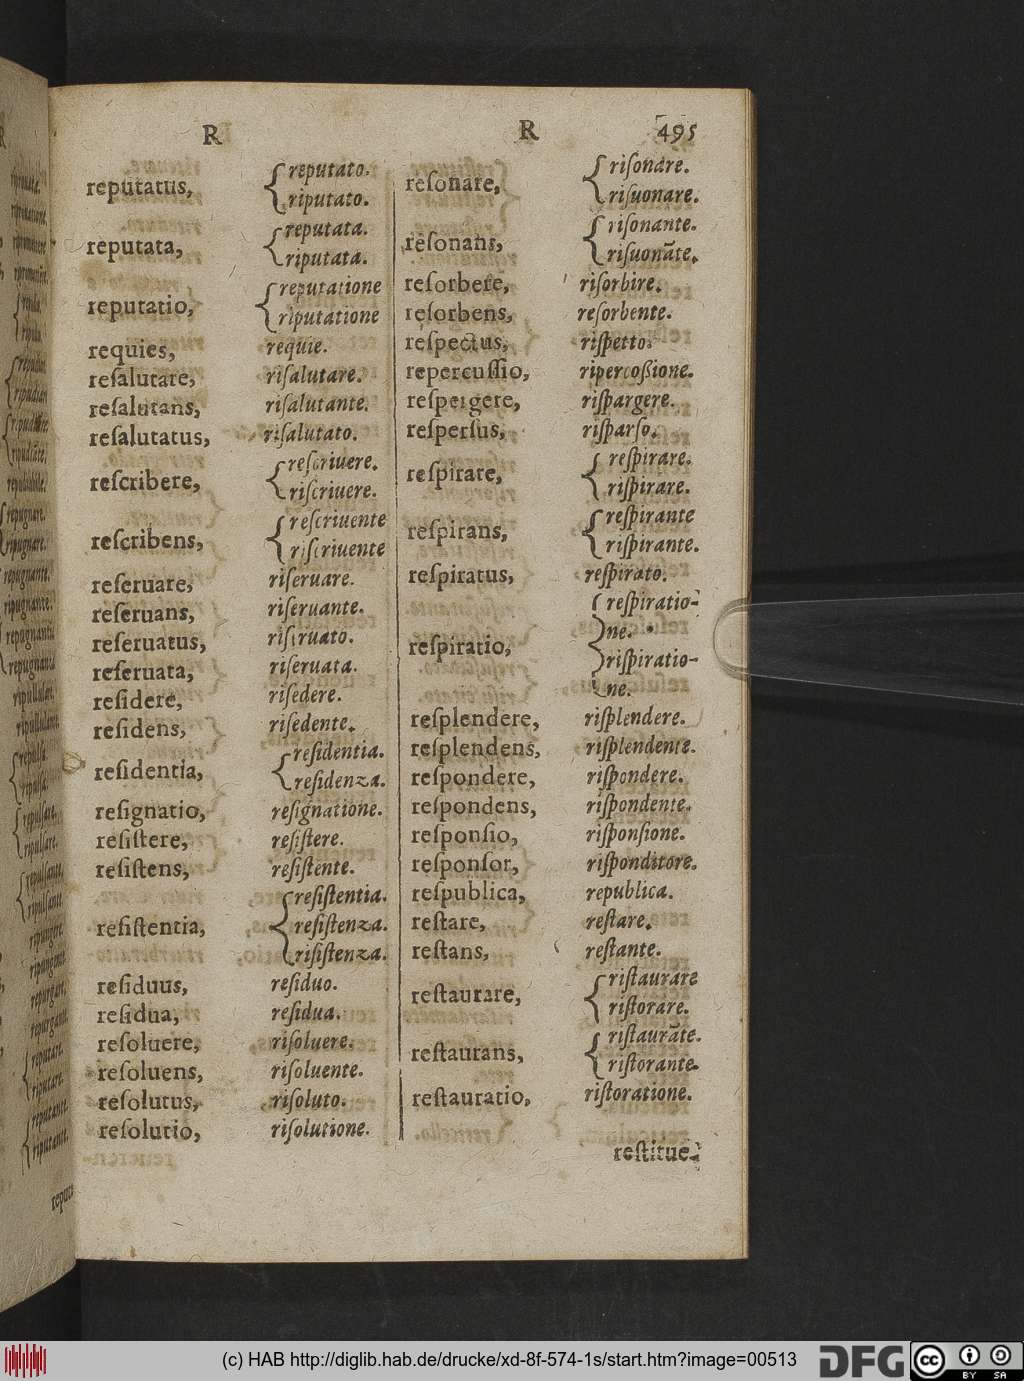 R R 495
reputatus, { reputato.
riputato.
reputata, { reputata.
riputata.
reputatio, { reputatione
riputatione
requies, requie.
reſalutare, riſalutare.
reſalutans, riſalutante.
reſalutatus, riſalutato.
reſcribere, { reſcriuere.
riſcriuere.
reſcribens, { reſcriuente
riſcriuente
reſeruare, riſeruare.
reſeruans, riſeruante.
reſeruatus, riſeruato.
reſeruata, riſeruata.
reſidere, riſedere.
reſidens, riſedente.
reſidentia, { reſidentia.
reſidenza.
reſignatio, reſignatione.
reſiſtere, reſiſtere.
reſiſtens, reſiſtente.
reſiſtentia, { reſiſtentia.
reſiſtenza.
riſiſtenza.
reſiduus, reſiduo.
reſidua, reſidua.
reſoluere, riſoluere.
reſoluens, riſoluente.
reſolutus, riſoluto.
reſolutio, riſolutione.
reſonare, { riſonare.
riſuonare.
reſonans, { riſonante.
riſuonãte.
reſorbere, riſorbire.
reſorbens, reſorbente.
reſpectus, riſpetto.
repercuſſio, ripercoßione.
reſpergere, riſpargere.
reſperſus, riſparſo.
reſpirare, { reſpirare.
riſpirare.
reſpirans, { reſpirante
riſpirante.
reſpiratus, reſpirato.
reſpiratio, { reſpiratio-
ne.
riſpiratio-
ne.
reſplendere, riſplendere.
reſplendens, riſplendente.
reſpondere, riſpondere.
reſpondens, riſpondente.
reſponſio, riſponſione.
reſponſor, riſponditore.
reſpublica, republica.
reſtare, reſtare.
reſtans, reſtante.
reſtaurare, { riſtaurare
riſtorare.
reſtaurans, { riſtaurãte.
riſtorante.
reſtauratio, riſtoratione.
reſtitue-
(c) HAB http://diglib.hab.de/drucke/xd-8f-574-1s/start.htm?image=00513
DFG
cc BY SA